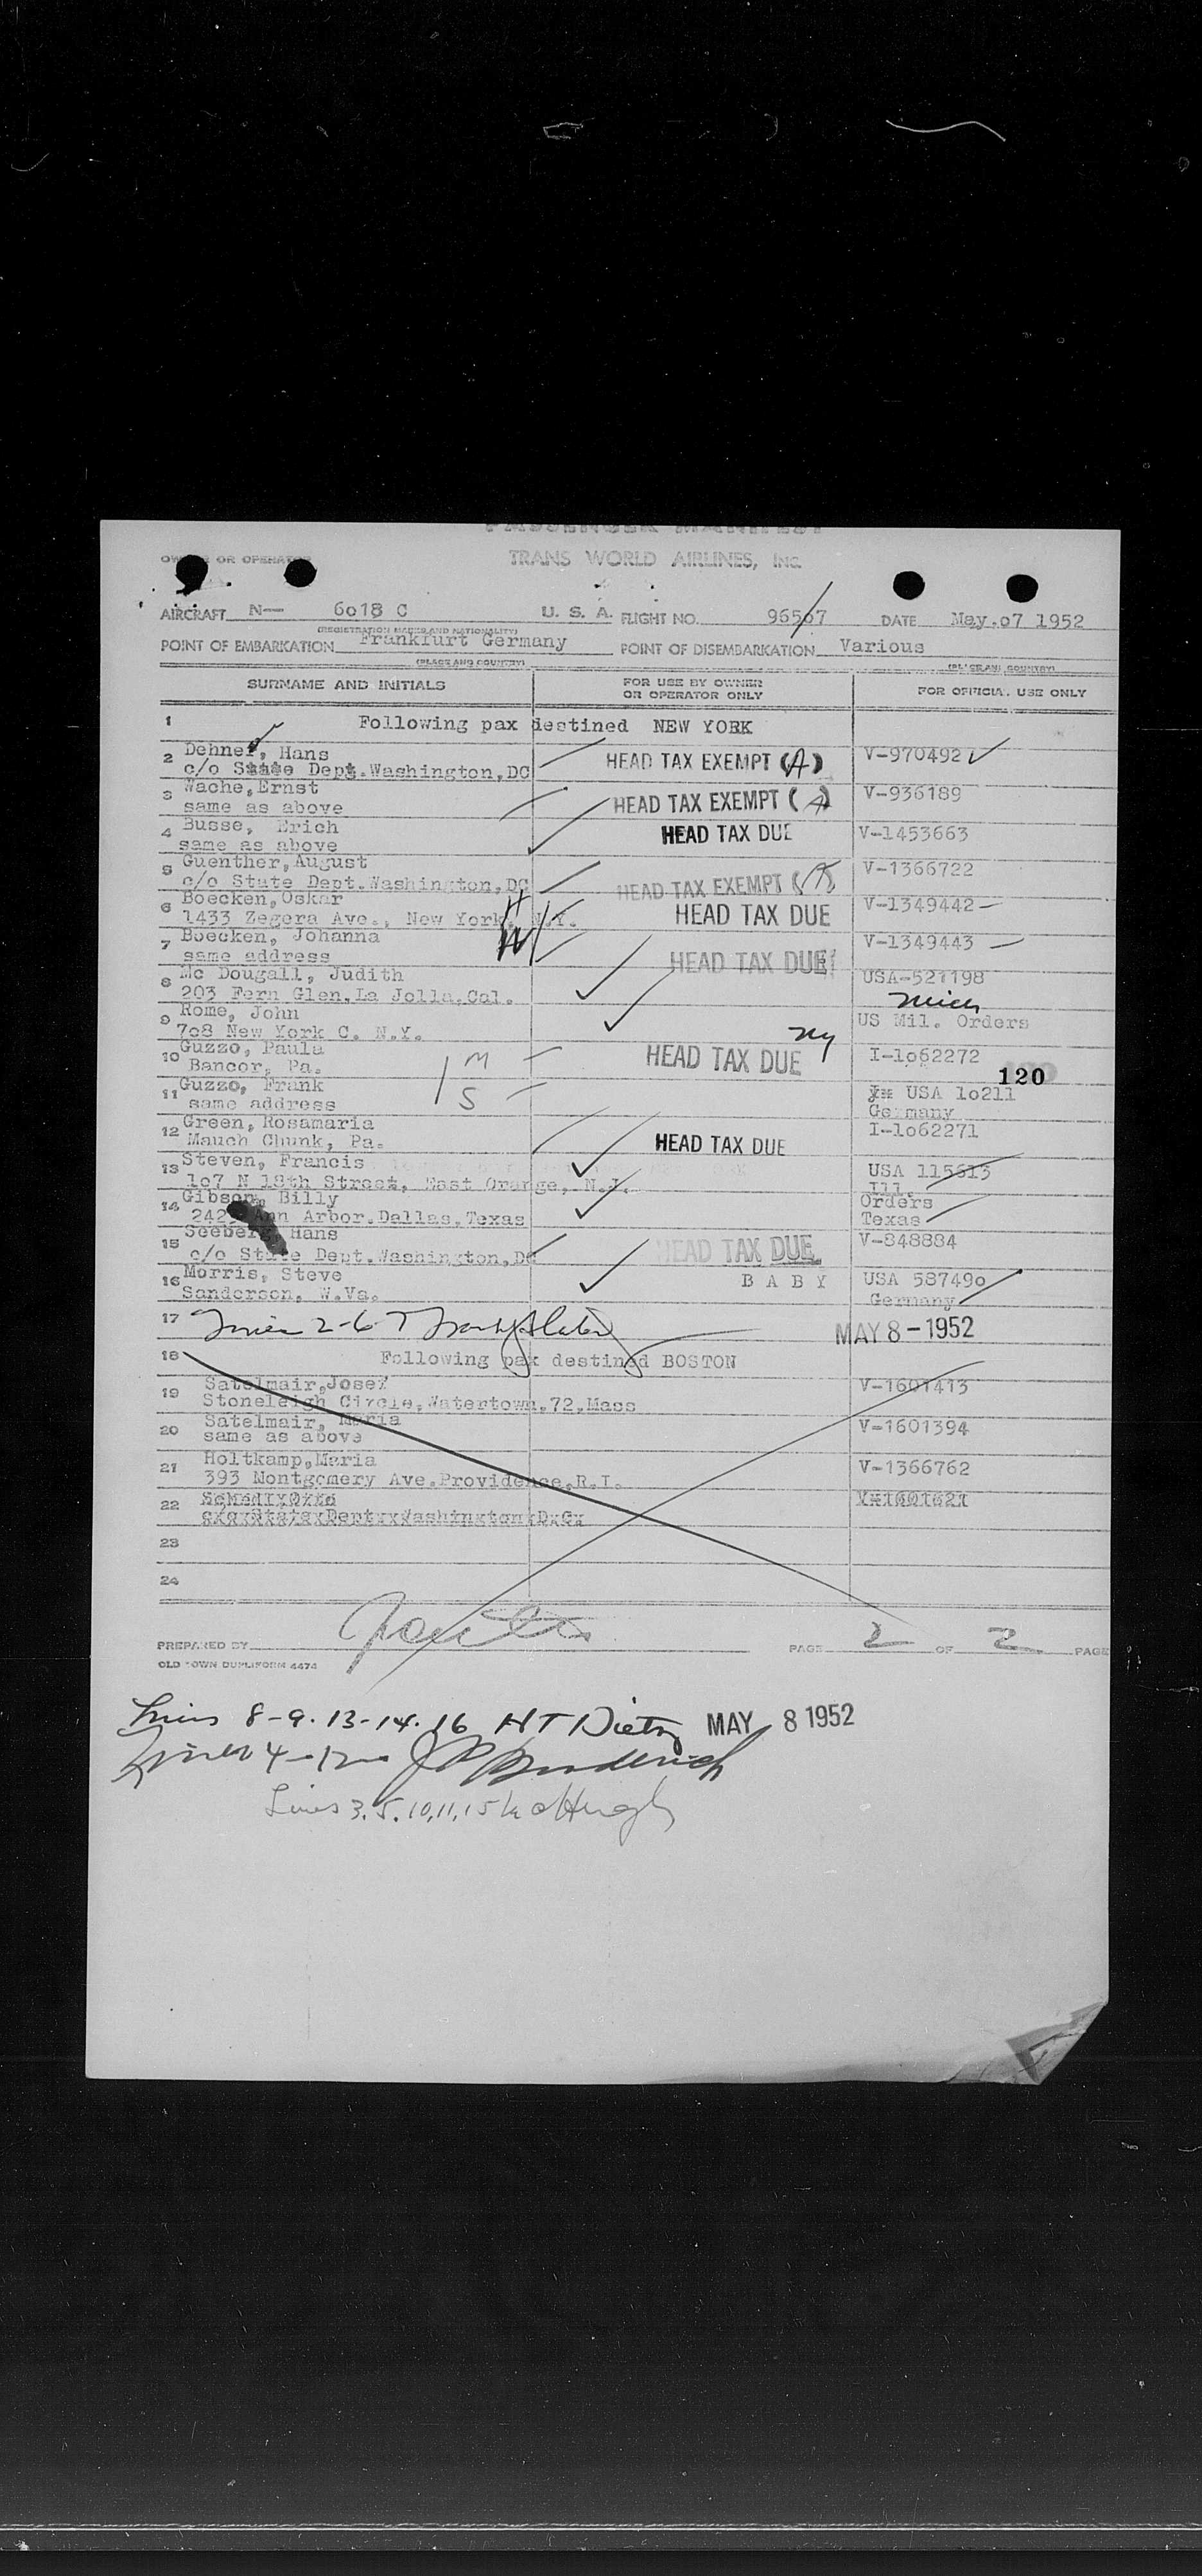 PASSENGER MANIFEST
OWNER OR OPERATOR TRANS WORLD AIRLINES, INC.
AIRCRAFT N— 6o18 C U. S. A. FLIGHT NO. 965/o7 DATE May.o7 1952
(REGISTRATION MARKS AND NATIONALITY)
POINT OF EMBARKATION Frankfurt Germany POINT OF DISEMBARKATION Various
(PLACE AND COUNTRY) (PLACE AND COUNTRY)
SURNAME AND INITIALS FOR USE BY OWNER OR OPERATOR ONLY FOR OFFICIAL USE ONLY
1 Following pax destined NEW YORK
2 Dehner, Hans HEAD TAX EXEMPT (A) V-970492
c/o State Dept.Washington,DC
3 Wache,Ernst HEAD TAX EXEMPT (A) V-936189
same as above
4 Busse, Erich HEAD TAX DUE V-1453663
same as above
5 Guenther,August HEAD TAX EXEMPT (A) V-1366722
c/o State Dept.Washington,DC
6 Boecken,Oskar HEAD TAX DUE V-1349442
1433 Zegera Ave., New York, N.Y. H
7 Boecken, Johanna W HEAD TAX DUE V-1349443
same address
8 Mc Dougall, Judith USA-521198
203 Fern Glen,La Jolla,Cal.
9 Rome, John US Mil. Orders
7o8 New York C. N.Y. ny
10 Guzzo, Paula 1 M HEAD TAX DUE I-1o62272
Bancor, Pa. 120
11 Guzzo, Frank S USA 1o211
same address Germany
12 Green, Rosamaria HEAD TAX DUE I-1o62271
Mauch Chunk, Pa.
13 Steven, Francis USA 115613
1o7 N 18th Street, East Orange, N.J. Ill.
14 Gibson, Billy Orders
242 Ann Arbor.Dallas,Texas Texas
15 Seeberg, Hans HEAD TAX DUE V-848884
c/o State Dept.Washington,DC
16 Morris, Steve B A B Y USA 58749o
Sanderson, W.Va. Germany
17 Lines 2-6-7 MAY 8-1952
18 Following pax destined BOSTON
19 Satelmair,Josef V-1601413
Stoneleigh Circle,Watertown,72,Mass
20 Satelmair, Maria V-1601394
same as above
21 Holtkamp,Maria V-1366762
393 Montgomery Ave.Providence,R.I.
22
23
24
PREPARED BY PAGE 2 OF 2 PAGE
OLD TOWN DUPLIFORM 4474
Lines 8-9-13-14-16 HT Dietz MAY 8 1952
Lines 4-12 J Broderick
Lines 3,5,10,11,15